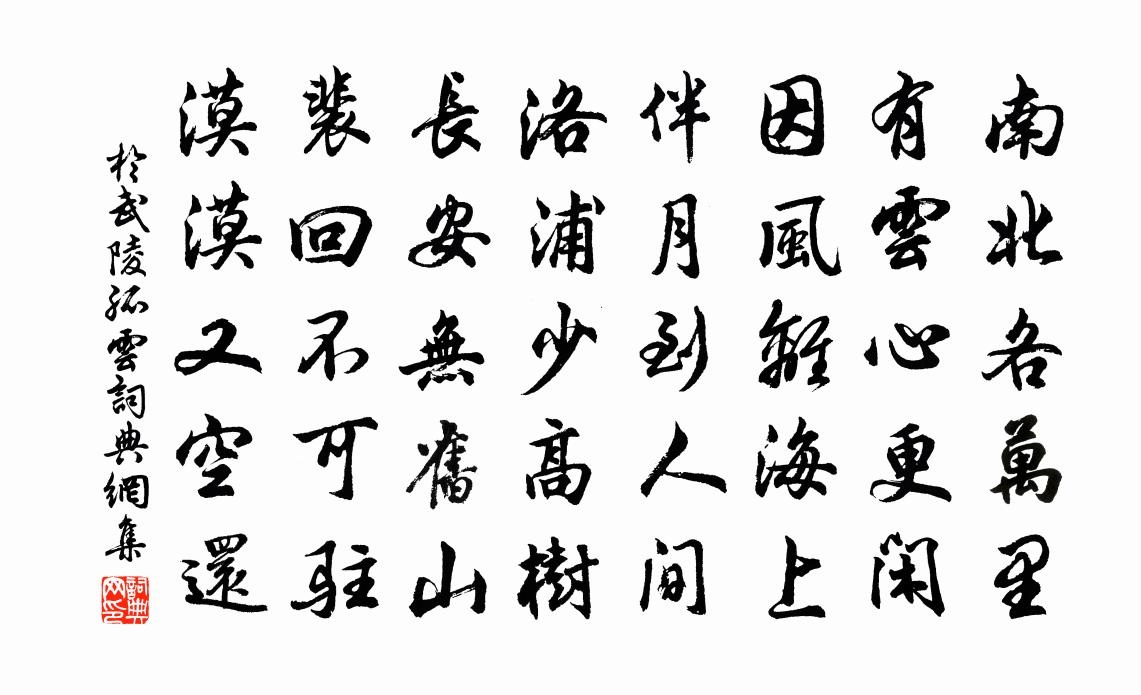 南北各萬里
有雲心更閑
因風離海上
伴月到人間
洛浦少高樹
長安無舊山
裴回不可駐
漠漠又空還
於武陵孤雲詞典網集
詞典
网印